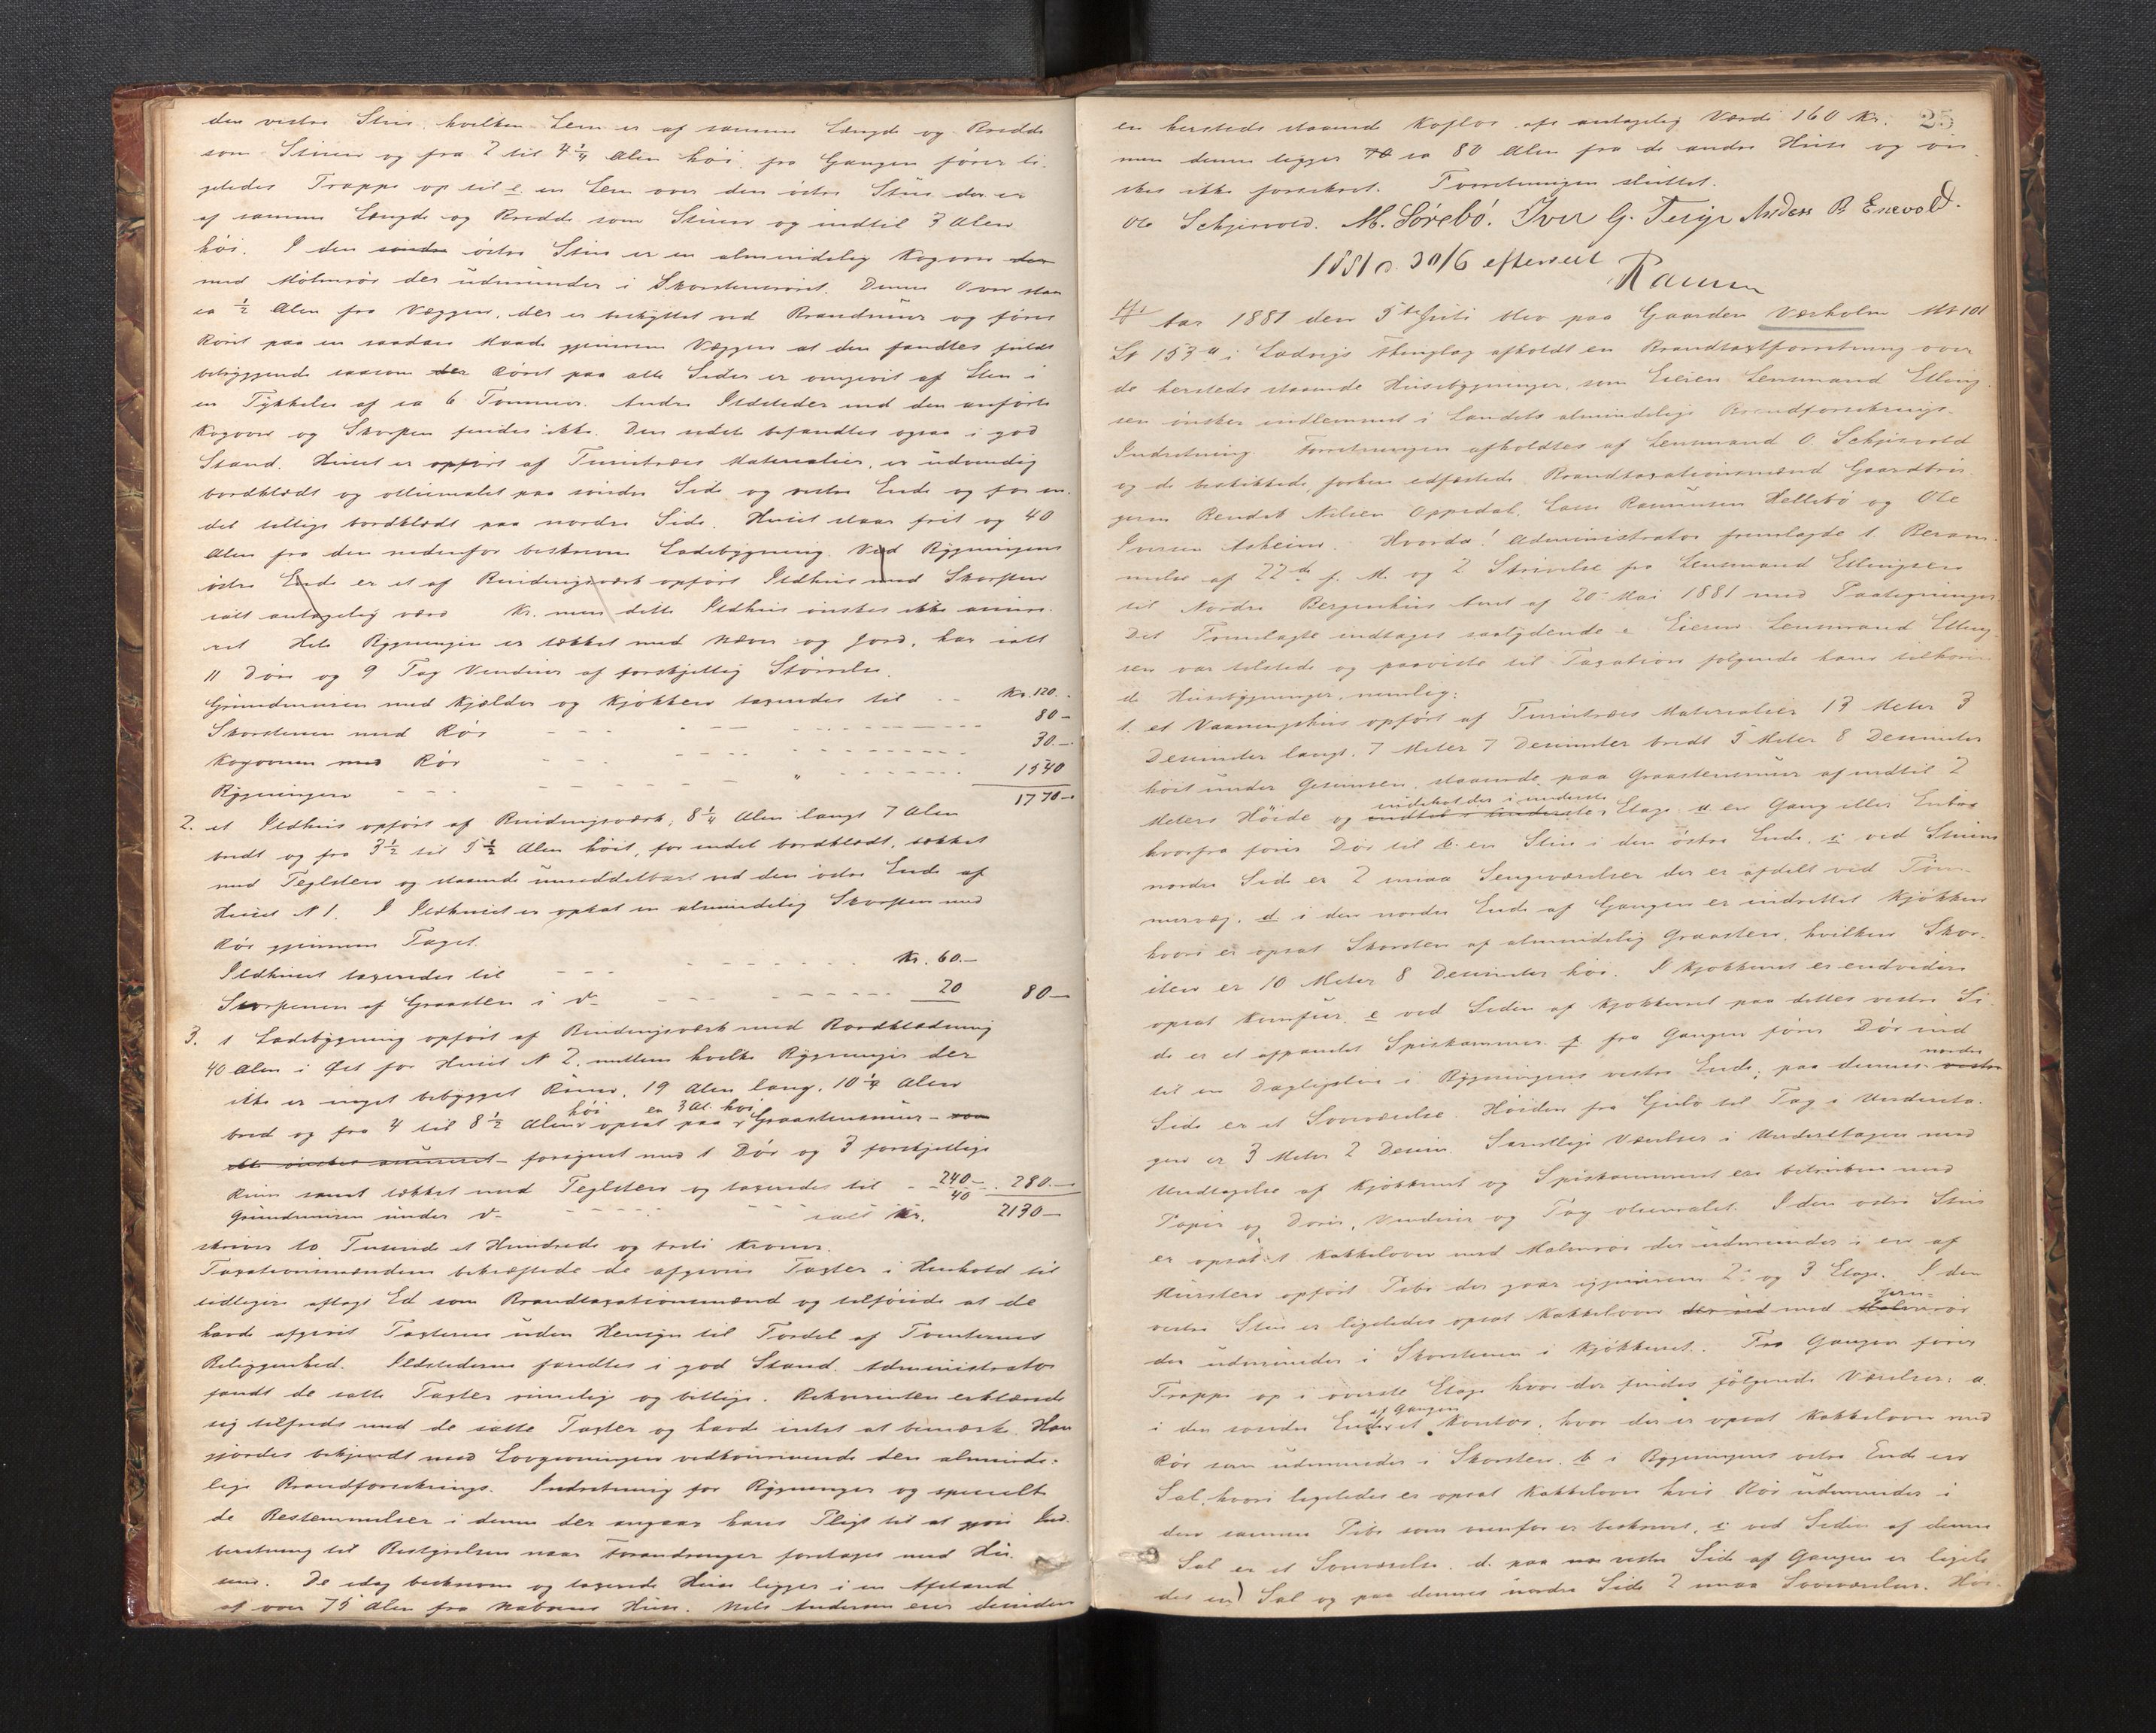 den vestre Stue hvilken Lem er af samme Længde og Bredde
som Stuen og fra 2 til 4 1/4 Alen høi. fra Gangen fører li-
geledes Trappe op til e en Lem over den østre Stue der er
af samme Længde og Bredde som Stuen og indtil 3 Alen
høi. I den søndre østre Stue er en almindelig Kogovn der
med Malmrør der udmunder i Skorstensrøret. Denne Ovn staar
ca 1/2 Alen fra Væggen, der er beskyttet ved Brandmur og føres
Røret paa en saadan Maade gjennem Væggen at den fandtes fuldt
betryggende saasom der Røret paa alle Sider er omgivet af Sten i
en Tykkelse af ca 6 Tommer. Andre Ildsteder end den anførte
Kogovn og Skorsten findes ikke. Den sidste befandtes ogsaa i god
Stand. Huset er opført af Furutræes Materialier, er udvendig
bordklædt og oliemalet paa søndre Side og vestre Ende og for en-
del tillige bordklædt paa nordre Side. Huset staar frit og 40
Alen fra den nedenfor beskrevne Ladebygning. Ved Bygningens
østre Ende er et af Bindingsværk opført Ildhus med Skorsten
ialt antagelig værd Kr. men dette Ildhus ønskes ikke assure-
ret. Hele Bygningen er tækket med Næver og Jord, har ialt
11 Døre og 9 Fag Vinduer af forskjellig Størrelse.
Grundmuren med Kjælder og Kjøkken taxeredes til Kr. 120.
Skorstenen med Rør 80-
Kogovnen med Rør 30.-
Bygningen " 1540
1770-
2. et Ildhus opført af Bindingsværk, 8 1/4 Alen langt 7 Alen
bredt og fra 3 1/2 til 5 1/2 Alen høit, for endel bordklædt, tækket
med Teglsten og staaende umiddelbart ved den østre Ende af
Huset N 1. I Ildhuset er opsat en almindelig Skorsten med
Rør gjennem Taget.
Ildhuset taxeredes til Kr. 60.-
Skorstenen af Graasten i do 20 80-
3. 1 Ladebygning opført af Bindingsværk med Bordklædning
40 Alen i Øst for Huset N 2. mellem hvilke Bygninger der
ikke er noget bebygget Rum, 19 Alen lang, 10 1/4 Alen
bred og fra 4 til 8 1/2 Alen høi opsat paa en 3 Al. høi Graastensmur - som
ikke ønskes assureret - forsynet med 1 Dør og 3 forskjellige
Rum samt tækket med Teglsten og taxeredes til 240-
Grundmuren under do 40 280.-
ialt Kr. 2130-
skriver to Tusinde et Hundrede og treti Kroner.
Taxationsmændene bekræftede de afgivne Taxter i Henhold til
tidligere aflagt Ed som Brandtaxationsmænd og tilføiede at de
havde afgivet Taxterne uden Hensyn til Fordel af Tomternes
Beliggenhed. Ildstederne fandtes i god Stand. Administrator
fandt de satte Taxter rimelige og billige. Rekvirenten erklærede
sig tilfreds med de satte Taxter og havde intet at bemærke. Han
gjordes bekjendt med Lovgivningen vedkommende den alminde-
lige Brandforsikrings Indretning for Bygninger og specielt
de Bestemmelser i denne der angaar hans Pligt til at gjøre Ind-
beretning til Bestyrelsen naar Forandringer foretages med Hu-
sene. De idag beskrevne og taxerede Huse ligger i en Afstand
af over 75 Alen fra Naboens Huse. Nels Andersen eier desuden
25
en hersteds staaende Koflor af antagelig Værdi 160 Kr.
men denne ligger 70 ca 80 Alen fra de andre Huse og øn-
skes ikke forsikret. Forretningen sluttet.
Ole Schjervold. M. Sørebø. Iver G. Anders B. Enevold.
1881 d. 30/6 efterseet
Aar 1881 den 5te Juli blev paa Gaarden Værholm M No 101
L No 153 a i Ladvigs Thinglag afholdt en Brandtaxtforretning over
de hersteds staaende Husebygninger, som Eieren Lensmand Elling-
sen ønsker indlemmet i Landets almindelige Brandforsikrings-
Indretning. Forretningen afholdtes af Lensmand O. Schjervold
og de beskikkede, forhen edfæstede Brandtaxationsmænd Gaardbru-
gerne Bendik Nilsen Oppedal, Lasse Rasmussen Hellebø og Ole
Iversen Asheim. Hvorda! Administrator fremlagde 1. Beram-
melse af 22de f. M. og 2 Skrivelse fra Lensmand Ellingsen
til Nordre Bergenhus Amt af 20 Mai 1881 med Paategninger.
Det Fremlagte indtages saalydende: Eieren Lensmand Elling-
sen var tilstede og paaviste til Taxation følgende ham tilhøren-
de Husebygninger, nemlig:
1. et Vaaningshus opført af Furutræes Materialier 13 Meter 3
Decimeter langt, 7 Meter 7 Decimeter bredt 5 Meter 8 Decimeter
høit under Gesimsen, staaende paa Graastensmur af indtil 2
Meters Høide og indeholder i underste Etage a en Gang eller Entre
hvorfra fører Dør til b. en Stue i den østre Ende, c ved Stuens
nordre Side er 2 smaa Sengeværelser der er afdelt ved Tøm-
mervæg. d i den nordre Ende af Gangen er indrettet Kjøkken
hvori er opsat Skorsten af almindelig Graasten, hvilken Skor-
sten er 10 Meter 8 Decimeter høi. I Kjøkkenet er endvidere
opsat Komfur. e ved Siden af Kjøkkenet paa dettes vestre Si-
de er et afpanelet Spiskammer. f fra Gangen fører Dør ind
til en Dagligstue i Bygningens vestre Ende; paa dennes vestre nordre
Side er et Soveværelse. Høiden fra Gulv til Tag i Undereta-
gen er 3 Meter 2 Decim. Samtlige Værelser i Underetagen med
Undtagelse af Kjøkkenet og Spiskammeret er betrukken med
Papir og Døre, Vinduer og Tag oliemalet. I den østre Stue
er opsat 1 Kakkelovn med Malmrør der udmunder i en af
Mursten opført Pibe der gaar igjennem 2 og 3 Etage. I den
vestre Stue er ligeledes opsat Kakkelovn der ud med Malmrør jern-
der udmunder i Skorstenen i Kjøkkenet. Fra Gangen fører
Trappe op i øverste Etage hvor der findes følgende Værelser: a.
i den søndre Ende af Gangen et Kontor, hvor der er opsat Kakkelovn med
Rør som udmunder i Skorsten. b i Bygningens østre Ende en
Sal, hvori ligeledes er opsat Kakkelovn hvis Rør udmunder i
den samme Pibe som ovenfor er beskrevet, c ved Siden af denne
Sal er et Soveværelse. d. paa vestre Side af Gangen er ligele-
des en Sal og paa dennes nordre Side 2 smaa Soveværelser. Høi-